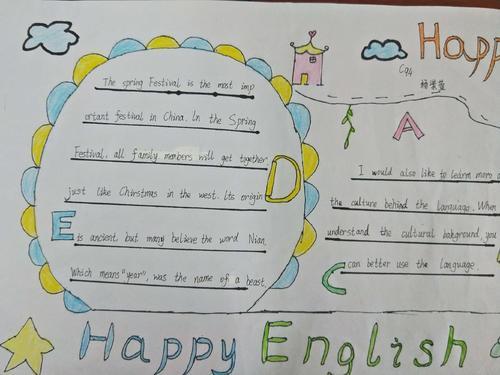 Happ
C94
The spring Festival is the most imp
ortant festival in China. In the Spring
Festival, all family members will get together,
just like Christmas in the west. Its origin
D
E is ancient. but many believe the word Nian,
Which means "year", was the name of a beast.
A
I would also like to learn more a
the culture behind the language. When
understand the cultural bakground, you
C can better use the language.
Happy English